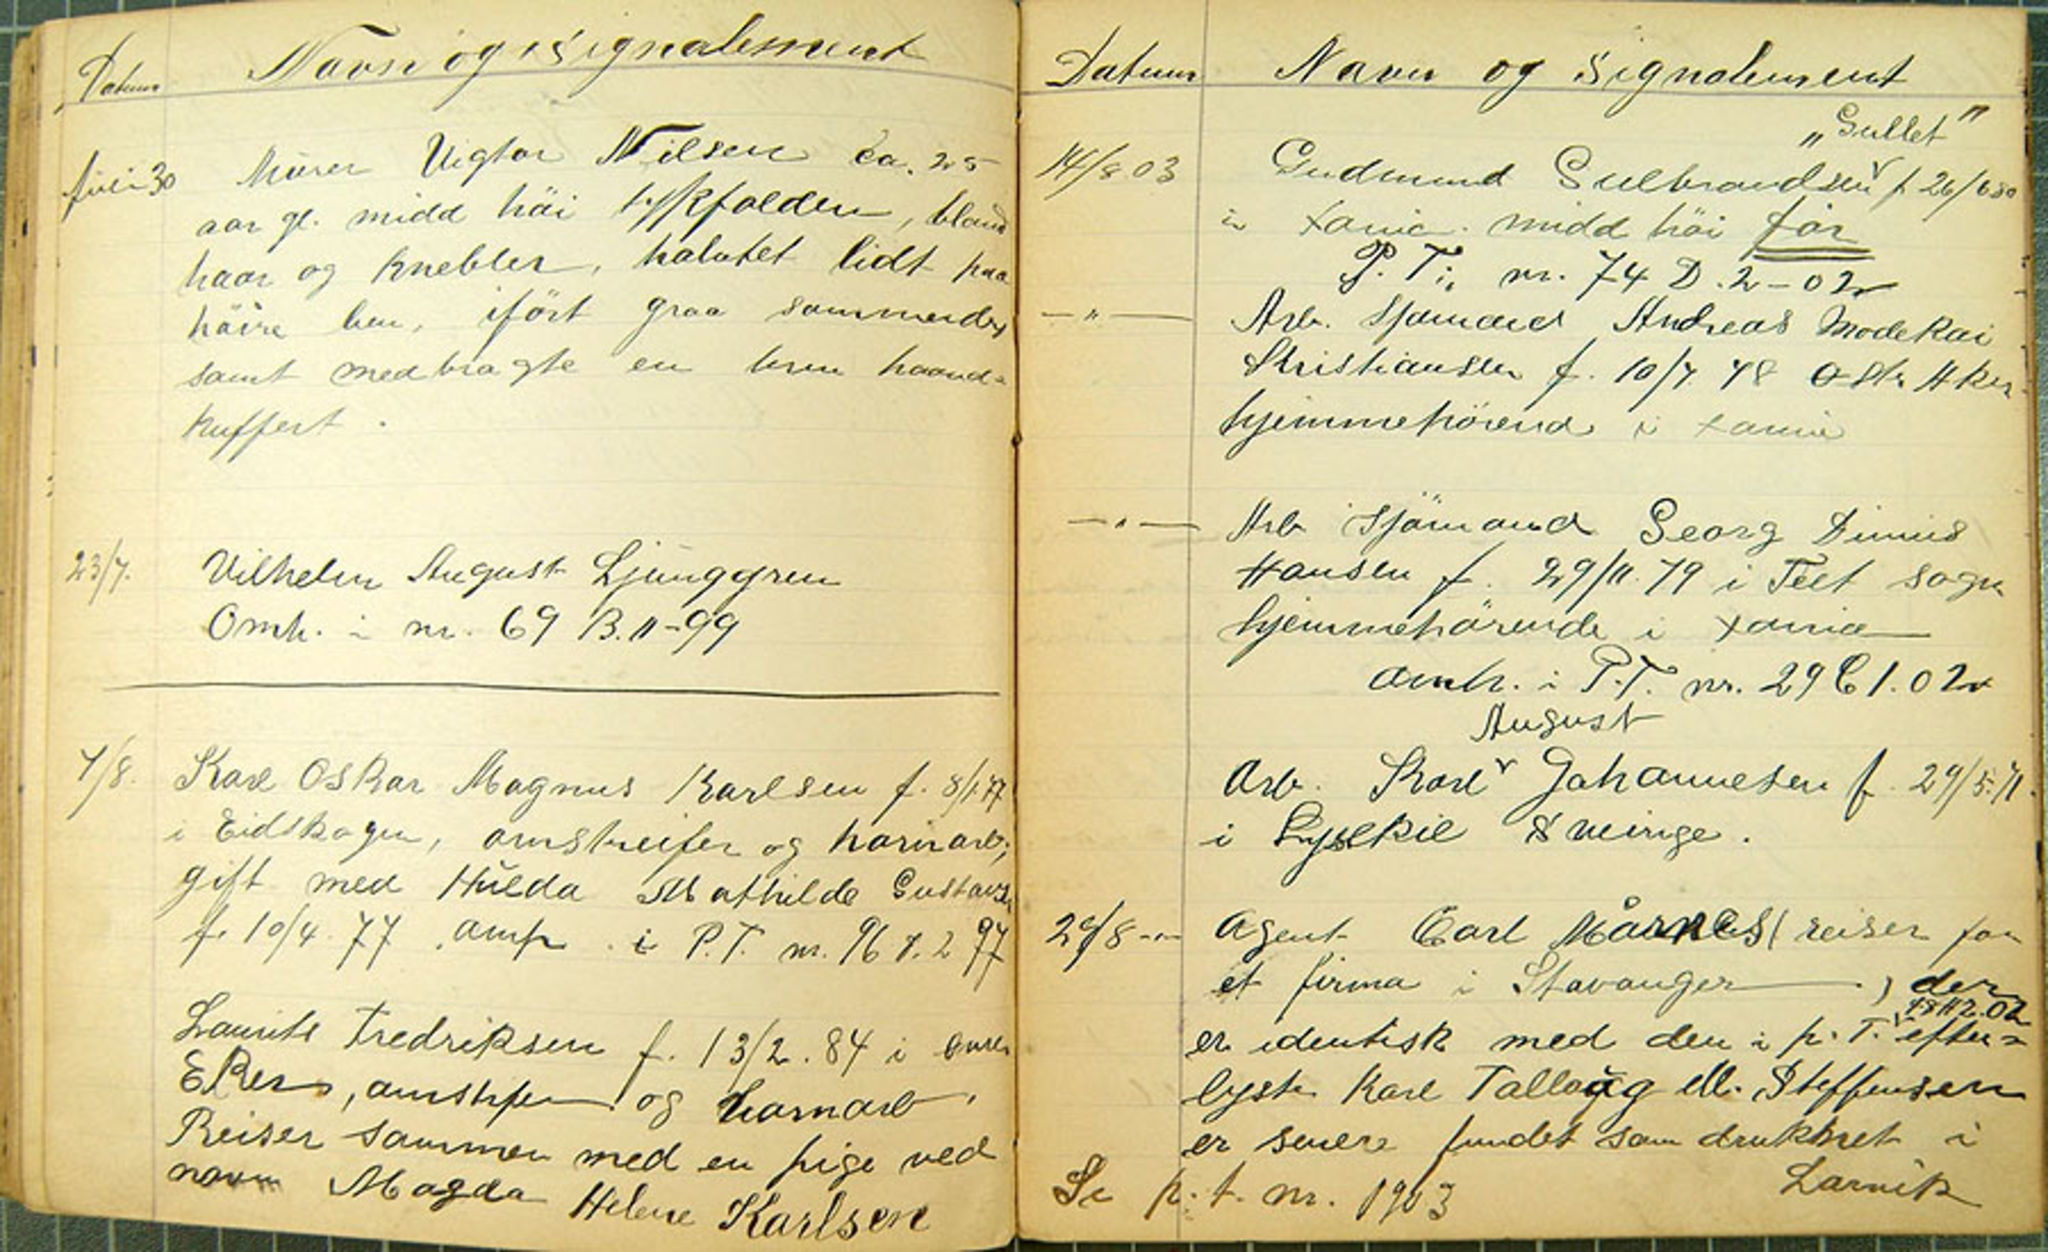 Datum Navn og Signalement
Juli 30 Murer Vigtor Nilsen ca. 25
aar gl. midd höi tykfalden, blond
haar og knebler, haltet lidt paa
höire ben, iført graa sommerdr
samt medbragte en brun haand-
kuffert.
23/7. Vilhelm August Ljunggren
Omh. i nr. 69 B. 11-99
7/8. Karl Oskar Magnus Karlsen f. 8/1.77
i Eidskogen, omstreifer og hornarb;
gift med Hulda Mathilde Gustavs
f. 10/4 77 i P.T. nr. 96 2 97
Laurits Fredriksen f. 13/2. 84 i
Eker, og Hornarb.
Reiser sammen med en pige ved
navn Magda Helene Karlsen
Datum Navn og Signalement
"Gullet"
14/8 03 Gudmund Gulbrandsen f. 26/6 80
i Xania. midd höi før
P. T. nr. 74 D. 2-02
-"- Arb. Sjömand Andreas Modekai
Kristiansen f. 10/7 78 Østr Aker
hjemmehörend i Xania
-"- Arb Sjömand Georg Dinius
Hansen f. 29/11. 79 i Teet sogn
hjemmehörende i Xania
omh. i P.T. nr. 29 C 1. 02
August
Arb. Karl Johannesen f. 29/5.71.
i Lysekil Sveirige.
29/8 -"- Agent Carl Mårnes (reiser for
et firma i Stavanger ), der
02
er identisk med den i p. T. efter=
lyste Karl Tallaug Steffensen
er senere fundet som druknet i
Larvik
Se p. t. nr. 1903